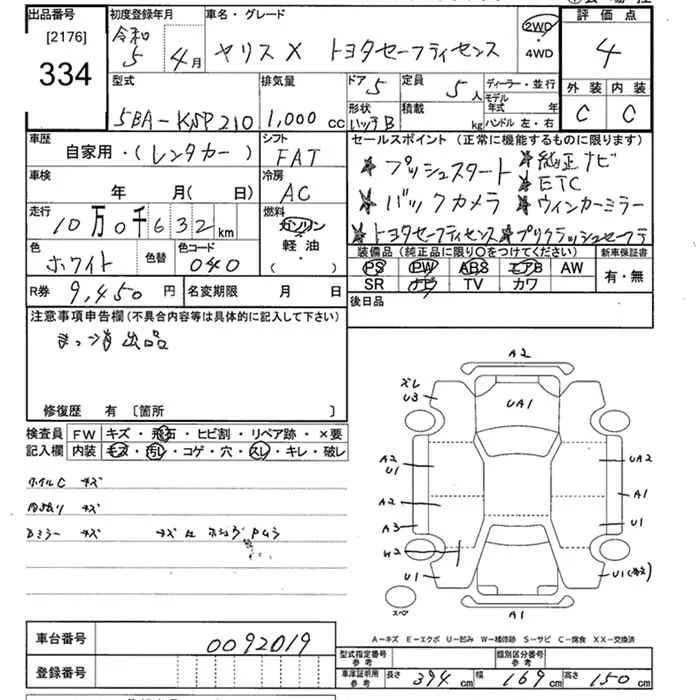 出品番号
[2176]
334
初度登録年月
令和
5 4月
車名・グレード
ヤリス X トヨタセーフティセンス
2WD
4WD
評価点
4
外装 内装
C C
型式
5BA-KSP210
排気量
1,000 cc
ドア 5
定員 5人
形状
ハッチB
積載 kg
ディーラー・並行
モデル年式 年
ハンドル 左・右
車歴
自家用・(レンタカー)
シフト
FAT
車検
年 月( 日)
冷房
AC
走行
10万0千632km
燃料
ガソリン
軽油
( ・ )
色
ホワイト
色替
色コード
040
R券 9,450円
名変期限 月 日
セールスポイント (正常に機能するものに限ります)
プッシュスタート
純正ナビ
ETC
バックカメラ
ウィンカーミラー
トヨタセーフティセンス
プリクラッシュセーフラ
装備品 (純正品に限り〇をつけてください)
PS PW ABS エアB AW
SR ナビ TV カワ
新車保証書
有・無
後日品
注意事項申告欄 (不具合内容等は具体的に記入して下さい)
まっ消出品
修復歴 有 〔箇所 〕
検査員記入欄
FW キズ・飛石・ヒビ割・リペア跡・×要
内装 キズ・汚レ・コゲ・穴・スレ・キレ・破レ
ホイルC キズ
Dミラー キズ
A2
ズレ
U3
UA1
A2
U1
UA2
A2
A1
A3
U1
W2
U1
A1
スペ
A-キズ E-エクボ U-凹み W-補修跡 S-サビ C-腐食 XX-交換済
車台番号 0092019
登録番号
型式指定番号 参考
類別区分番号 参考
車庫証明用 参考
長さ 394cm 幅 169cm 高さ 150cm